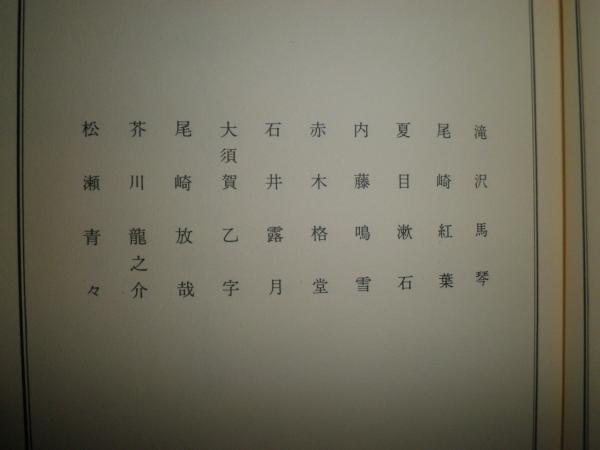 滝沢馬琴
尾崎紅葉
夏目漱石
内藤鳴雪
赤木格堂
石井露月
大須賀乙字
尾崎放哉
芥川龍之介
松瀬青々